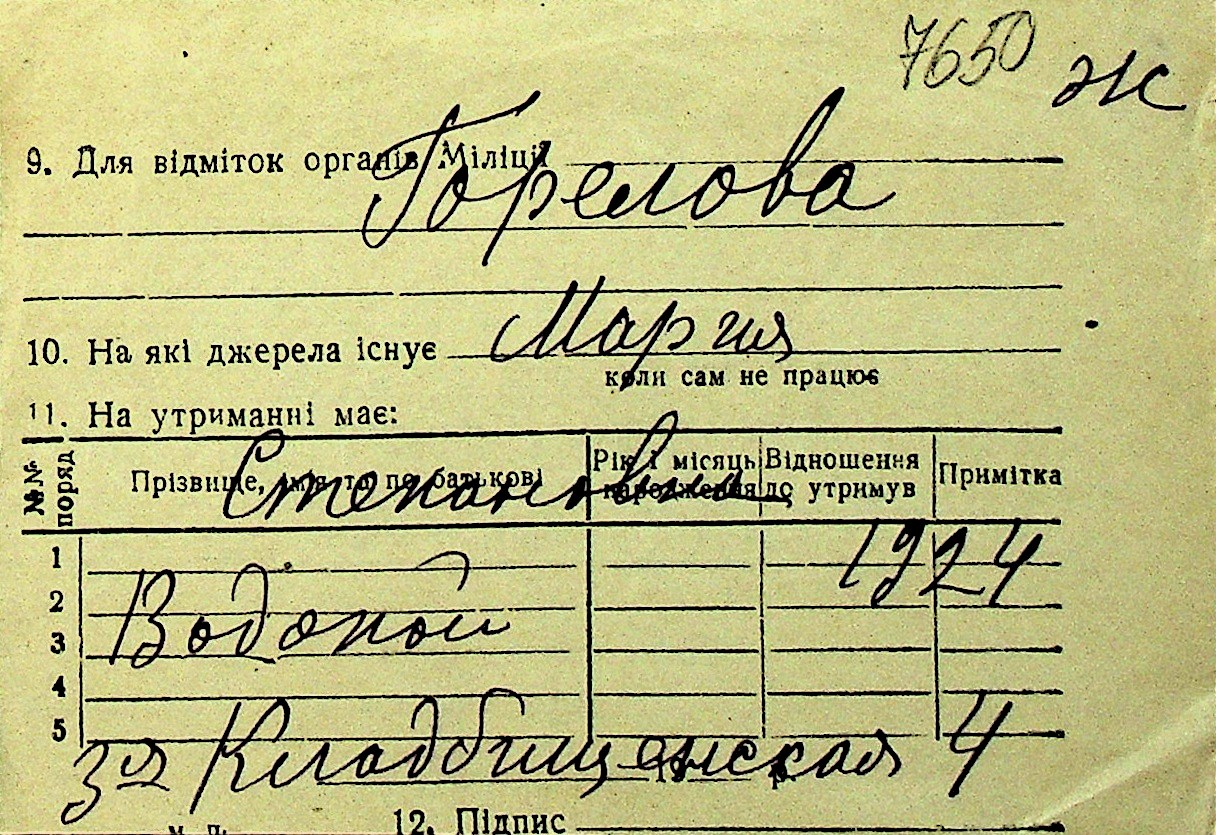 7650 ж
9. Для відміток органів Міліції
Горелова
10. На які джерела існує
Мария
коли сам не працює
11. На утриманні має:
№№ поряд
Прізвище, ім'я та по батькові
Рік і місяць народження
Відношення до утримув
Примітка
Степановна
1
1924
2
Водопой
3
4
5
3я Кладбищенская 4
19 р.
М. П.
12. Підпис